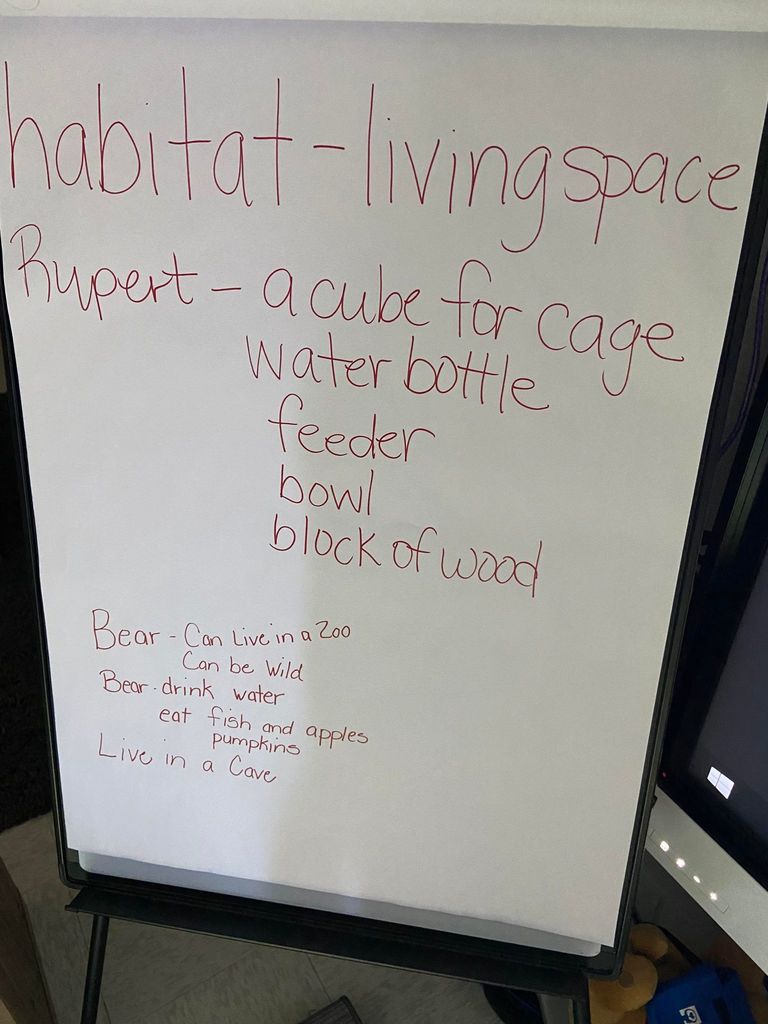 habitat - living space
Rupert - a cube for cage
water bottle
feeder
bowl
block of wood
Bear - Can Live in a Zoo
Can be Wild
Bear - drink water
eat fish and apples
pumpkins
Live in a Cave